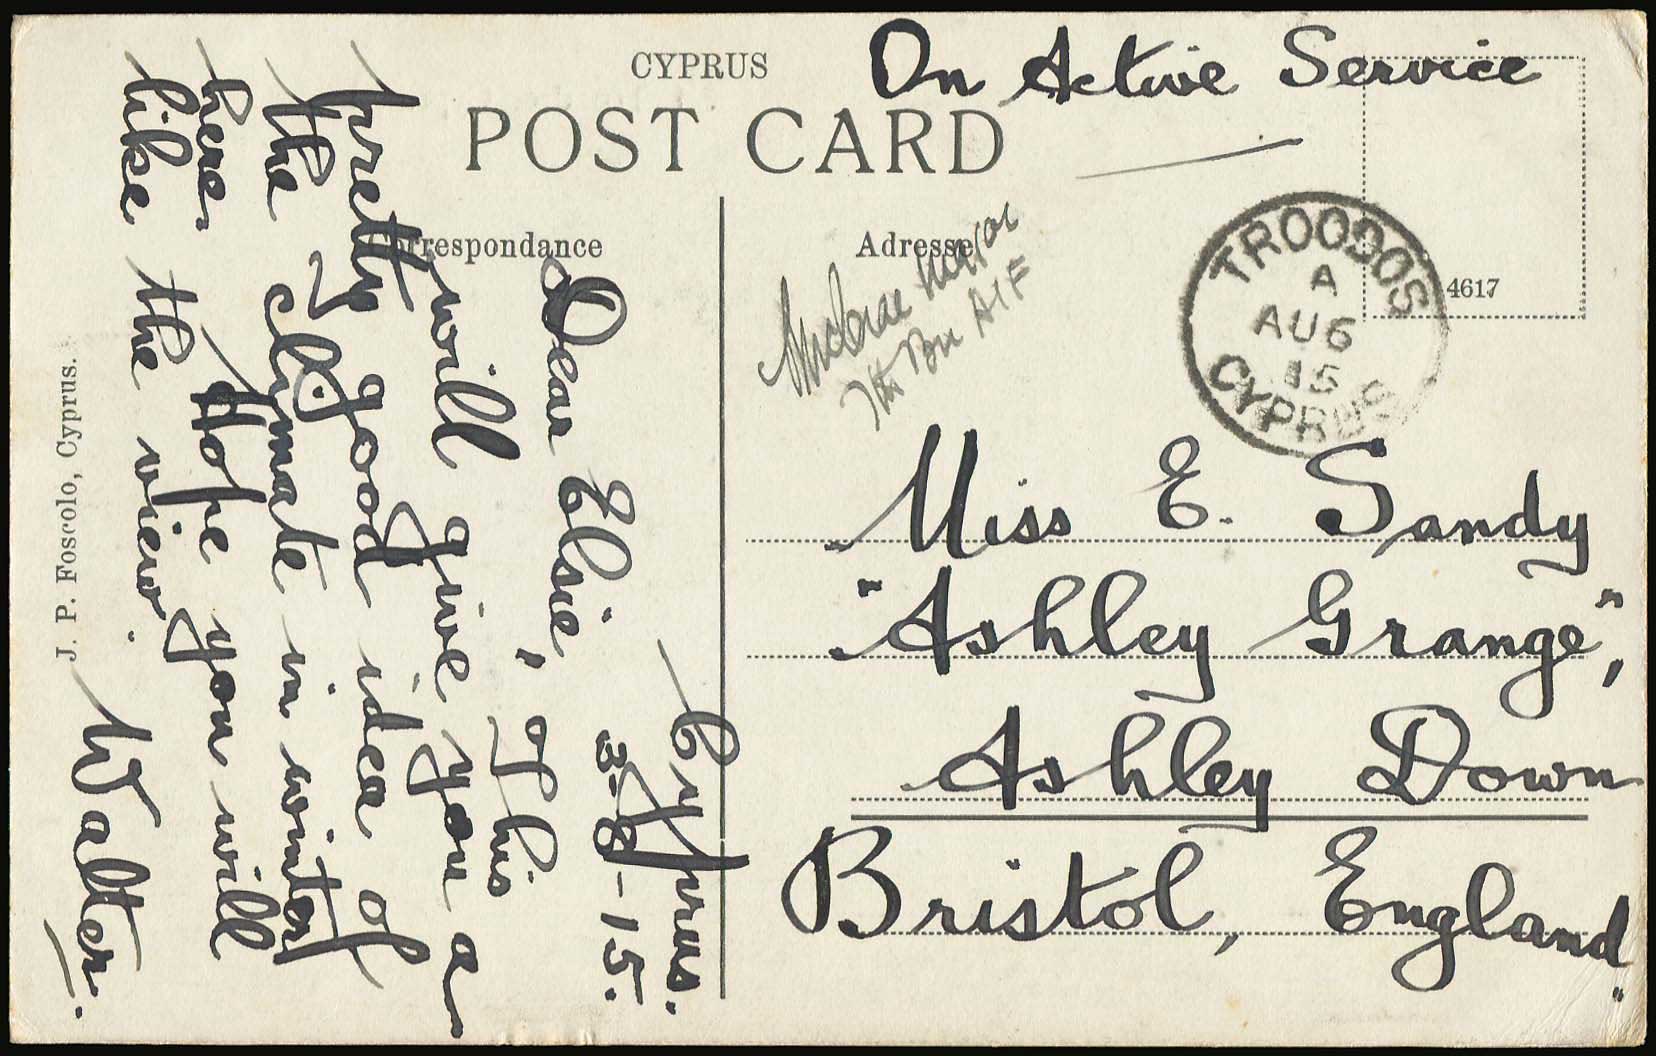 CYPRUS
POST CARD
On Active Service
Correspondance
Adresse
4617
TROODOS
A
AU 6
15
CYPRUS
Major
7th Bn AIF
Miss E. Sandy
"Ashley Grange",
Ashley Down
Bristol, England.
Cyprus.
3-8-15.
Dear Elsie,
, This
will give you a
pretty good idea of
the climate in winter
here. Hope you will
like the view.
Walter.
J. P. Foscolo, Cyprus.